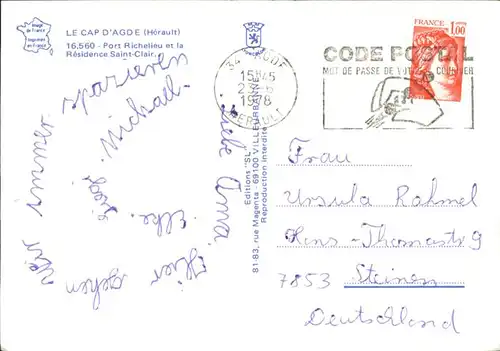 image de France
imprimée en France
LE CAP D'AGDE (Hérault)
16.560 - Port Richelieu et la
Résidence Saint-Clair.
Liebe Oma.
Hier gehen
wir immer
spazieren
Elke.
Michael.
Editions "SL"
81-83, rue Magenta - 69100 VILLEURBANNE
Reproduction interdite
34 AGDE
15H45
1978
HERAULT
CODE POSTAL
MOT DE PASSE DE VOTRE COURRIER
FRANCE
1,00
Frau
Ursula Rahmel
Hans-Thomastr 9
7853 Steinen
Deutschland